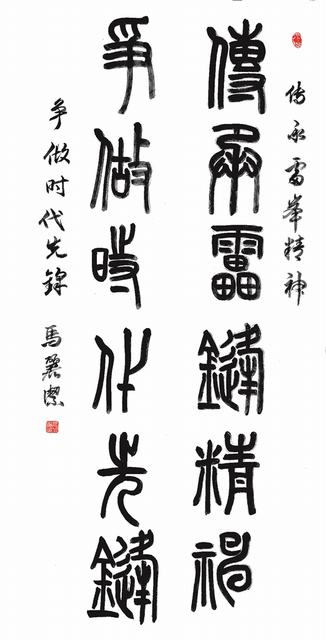 传承雷峯精神
傳承雷鋒精神
爭做時代先鋒
争做时代先锋
馬麗潔